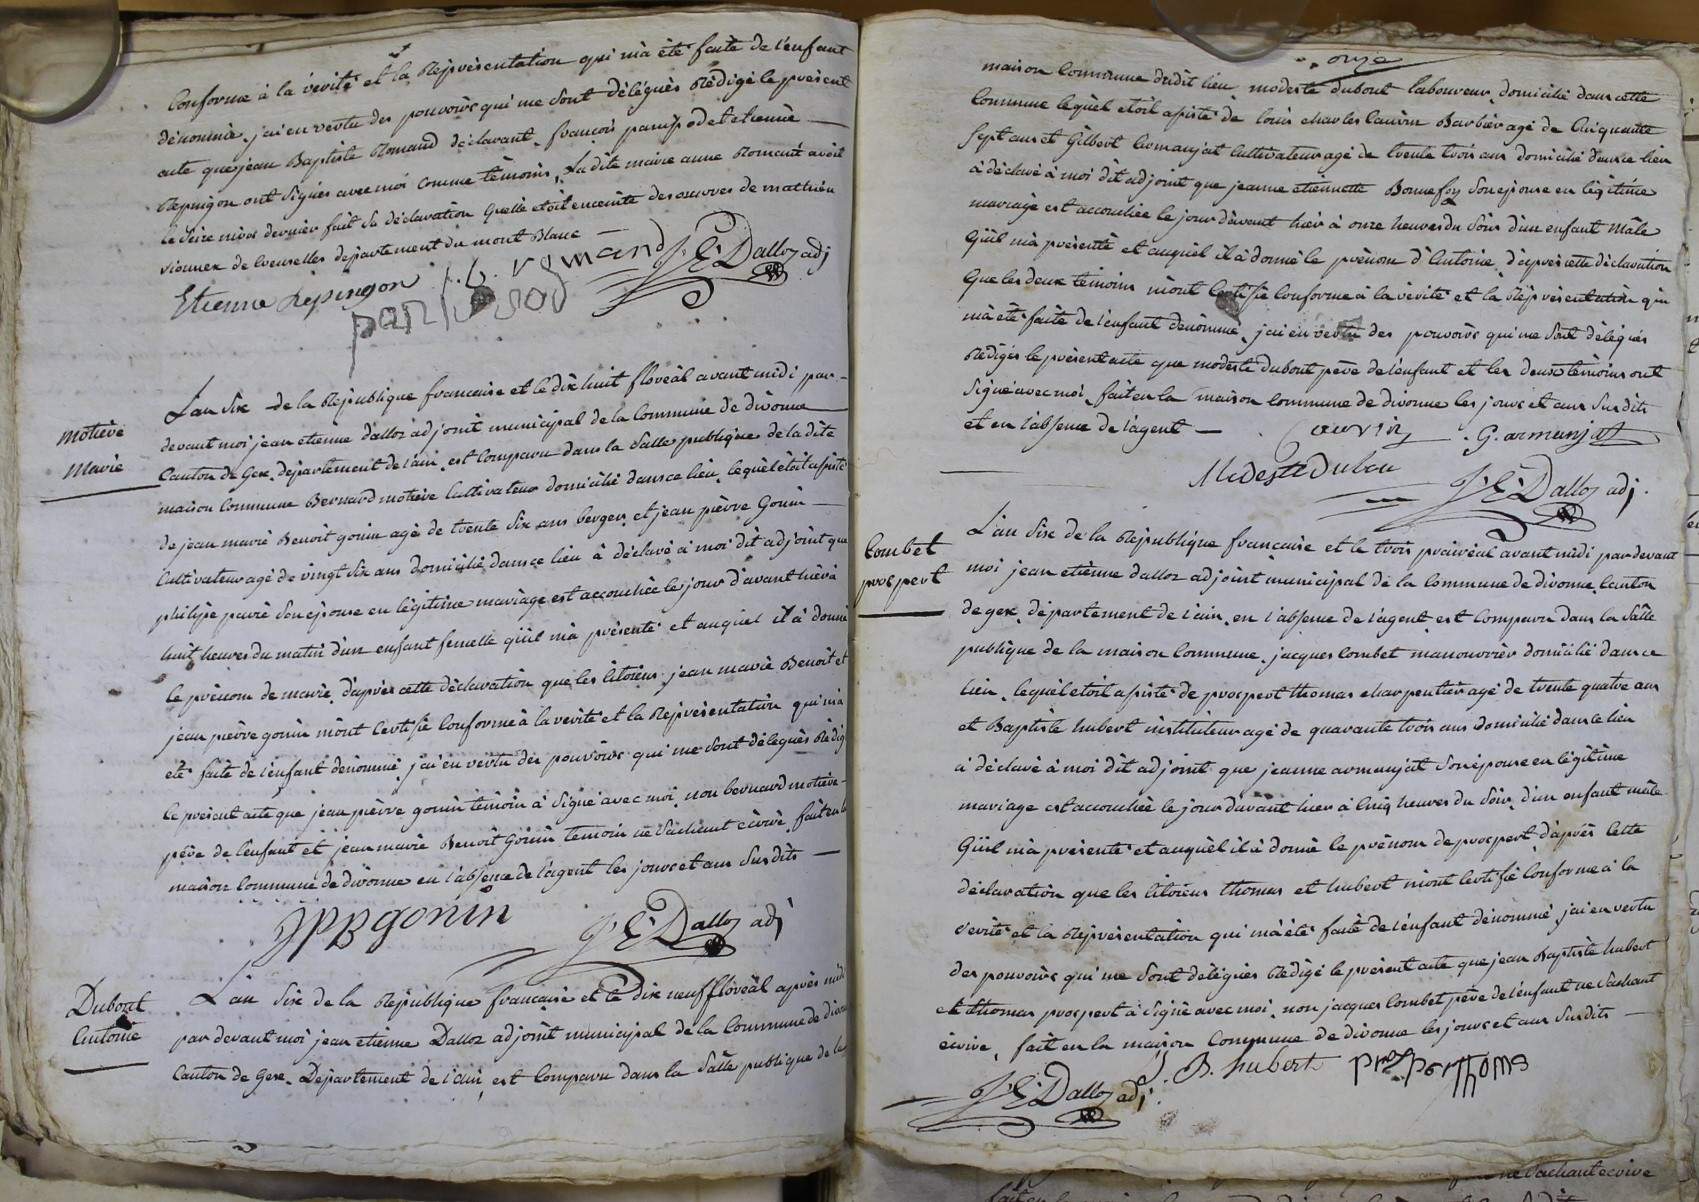 Conforme à la vérité et la Réprésentation qui m'a été faite de l'enfant
dénommé, j'ai en vertu des pouvoirs qui me sont délégués Rédigé le présent
acte que jean Baptiste Romand déclarant, françois panissod et etienne
Repingon ont signés avec moi comme témoins, Ladite marie anne Romand avoit
le seize nivos dernier fait sa déclaration quelle etoit enceinte des œuvres de mathieu
vionnex de département du mont Blanc
Etienne Repingon j. b. romand J. E. Dalloz adj
panisod
motière
Marie
L'an Six de la République francaise et le dix huit floréal avant midi par
devant moi jean etienne dalloz adjoint municipal de la commune de divonne
Canton de Gex, département de l'ain, est comparu dans la Salle publique de la dite
maison commune Bernard motière Cultivateur domicilié dans ce lieu, lequel étoit assisté
de jean marie Benoit gonin agé de trente Six ans berger et jean pierre Gonin
Cultivateur agé de vingt Six ans domicilié dans ce lieu à déclaré à moi dit adjoint que
philipe pavié Son epouse en légitime mariage est accouchée le jour d'avant hièr à
huit heures du matin d'un enfant femelle qu'il m'a présenté et auquel il à donné
le prénom de marie, d'après cette déclaration que les Citoiens jean marie Benoit et
jean pierre gonin m'ont certifié Conforme à la vérité et la Réprésentation qui m'a
été faite de l'enfant dénommé, j'ai en vertu des pouvoirs qui me sont délégués Rédigé
le présent acte que jean pierre gonin témoin à Signé avec moi, non bernard motière
père de l'enfant et jean marie Benoit Gonin temoin ne Sachant écrire, fait en la
maison commune de divonne en l'absence de l'agent les jours et ans Susdits
JPB gonin J. E. Dalloz adj
Dubout
Antoine
L'an Six de la République francaise et le dix neuf floréal après midi
par devant moi jean etienne Dalloz adjoint municipal de la Commune de divonne
Canton de Gex, Département de l'ain, est Comparu dans la Salle publique de la
onze
maison Commune dudit lieu modeste dubout laboureur, domicilié dans cette
Commune lequel etoit assisté de louis charles Cauvin Barbier agé de Cinquante
Sept ans et Gilbert Armanjat Cultivateur agé de trente trois ans domicilié dans ce lieu
à déclaré à moi dit adjoint que jeanne etiennette Bonnefoy Son epouse en légitime
mariage est accouchée le jour d'avant hièr à onze heures du Soir d'un enfant Mâle
Qu'il m'a présenté et auquel il à donné le prénom d'Antoine, d'après cette déclaration
que les deux témoins m'ont Certifié Conforme à la vérité et la Réprésentation qui
m'a été faite de l'enfant dénommé, j'ai en vertu des pouvoirs qui me Sont délégués
Rédigés le présent acte que modeste dubout père de l'enfant et les deux témoins ont
Signé avec moi, fait en la maison Commune de divonne les jours et ans Susdits
et en l'absence de l'agent Cauvin G. armanjat
Modeste Dubou J. E. Dalloz adj.
Combet
prospert
L'an Six de la République francaise et le trois prairéal avant midi par devant
moi jean etienne dalloz adjoint municipal de la Commune de divonne, Canton
de gex, département de l'ain, en l'absence de l'agent est Comparu dans la Salle
publique de la maison Commune, jacques Combet manouvrier domicilié dans ce
lieu, lequel etoit assisté de prospert thomas charpentier agé de trente quatre ans
et Baptiste hubert instituteur agé de quarante trois ans domicilié dans ce lieu
à déclaré à moi dit adjoint que jeanne armanjat Son epouse en légitime
mariage est accouchée le jour d'avant hier à Cinq heures du Soir, d'un enfant mâle
Qu'il m'a présenté et auquel il à donné le prénom de prospert, d'après Cette
déclaration que les Citoiens thomas et hubert m'ont Certifié Conforme à la
vérité et la Réprésentation qui m'a été faite de l'enfant dénommé, j'ai en vertu
des pouvoirs qui me Sont délégués Rédigé le présent acte que jean Baptiste hubert
et thomas prospert à Signé avec moi, non jacques Combet père de l'enfant ne Sachant
écrire, fait en la maison Commune de divonne les jours et ans Susdits
J. B. hubert prosper Thomas
J. E. Dalloz adj.
ne Sachant écrire
fait en